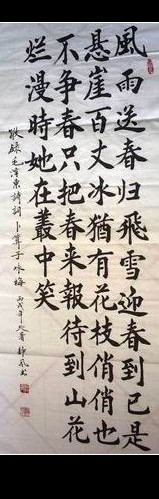 風雨送春归飛雪迎春到已是
悬崖百丈冰猶有花枝俏俏也
不争春只把春来報待到山花
烂漫時她在叢中笑
敬録毛澤東詩詞卜算子咏梅 丙戌年